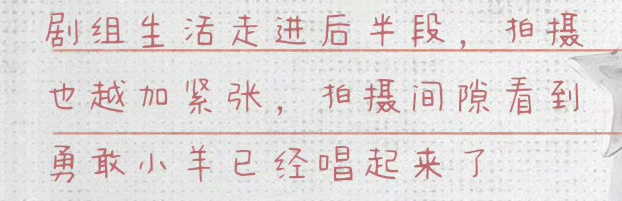 剧组生活走进后半段，拍摄
也越加紧张，拍摄间隙看到
勇敢小羊已经唱起来了